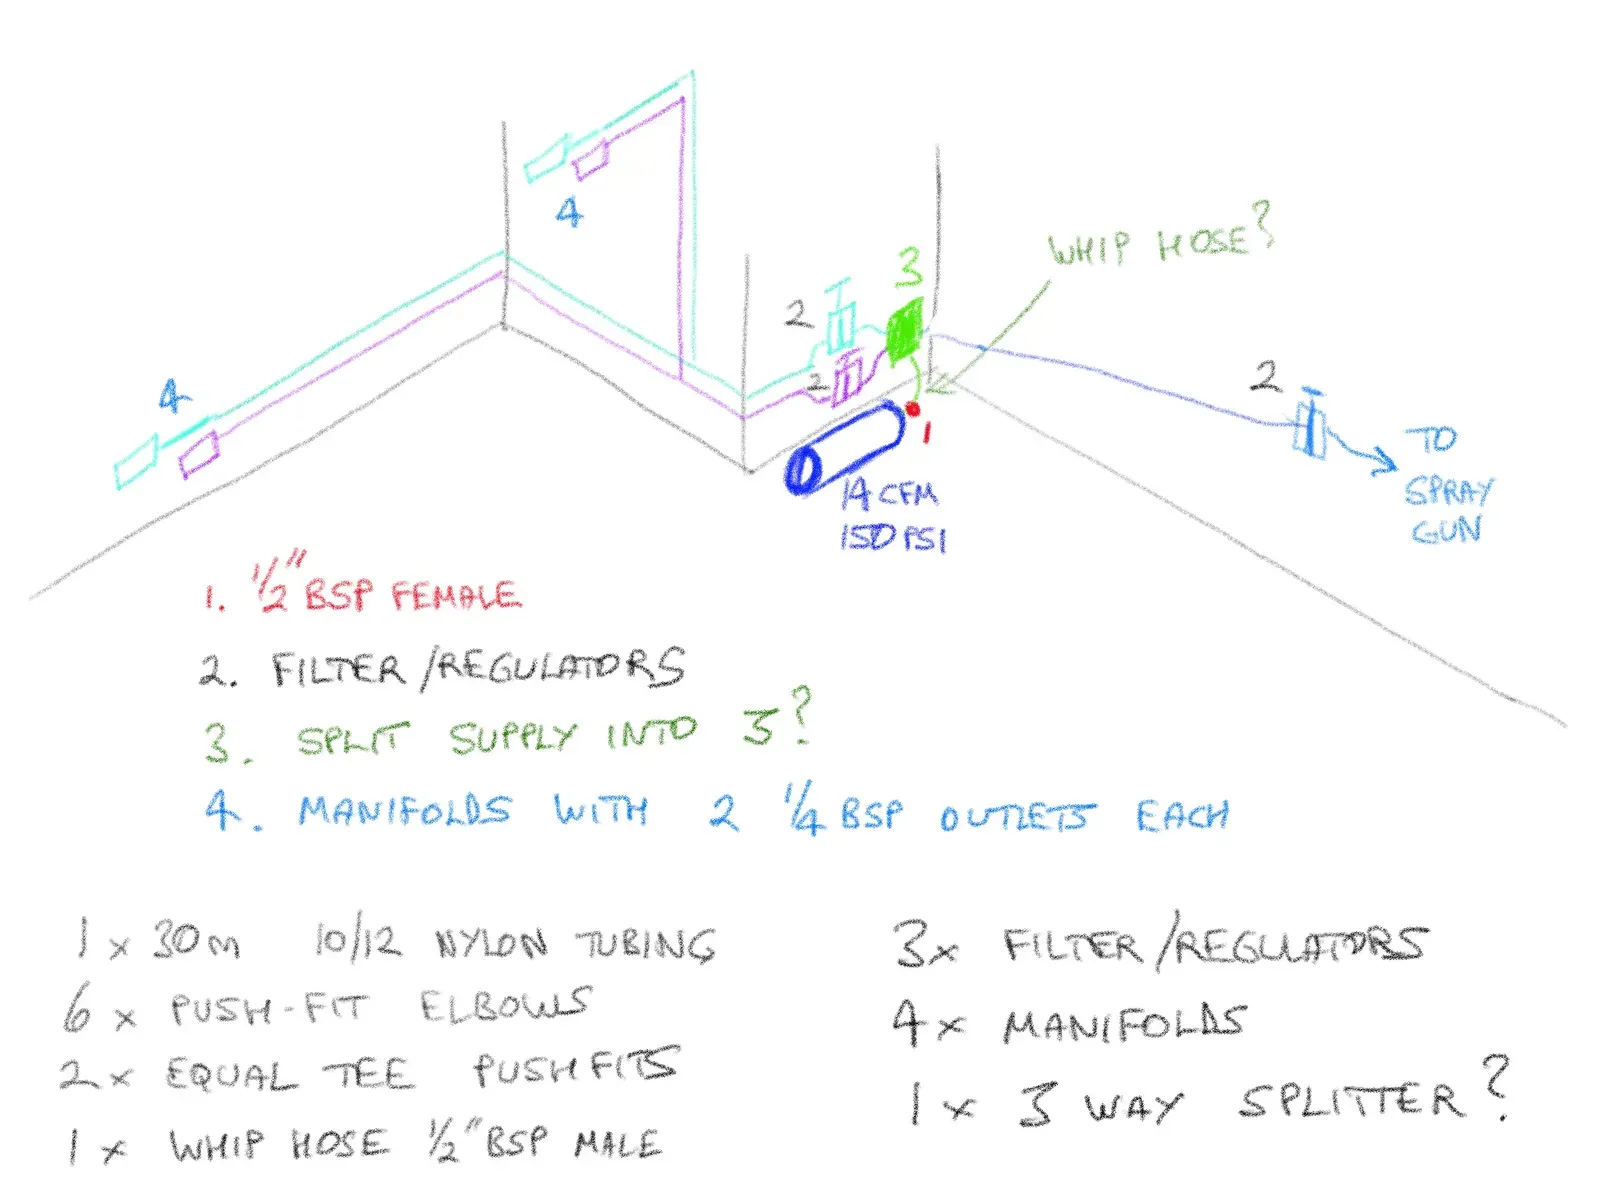 4
WHIP HOSE?
3
2
2
2
4
1
TO
SPRAY
GUN
14 CFM
150 PSI
1. 1/2" BSP FEMALE
2. FILTER/REGULATORS
3. SPLIT SUPPLY INTO 3?
4. MANIFOLDS WITH 2 1/4 BSP OUTLETS EACH
1 x 30m 10/12 NYLON TUBING
6 x PUSH-FIT ELBOWS
2 x EQUAL TEE PUSHFITS
1 x WHIP HOSE 1/2" BSP MALE
3x FILTER/REGULATORS
4x MANIFOLDS
1 x 3 WAY SPLITTER?